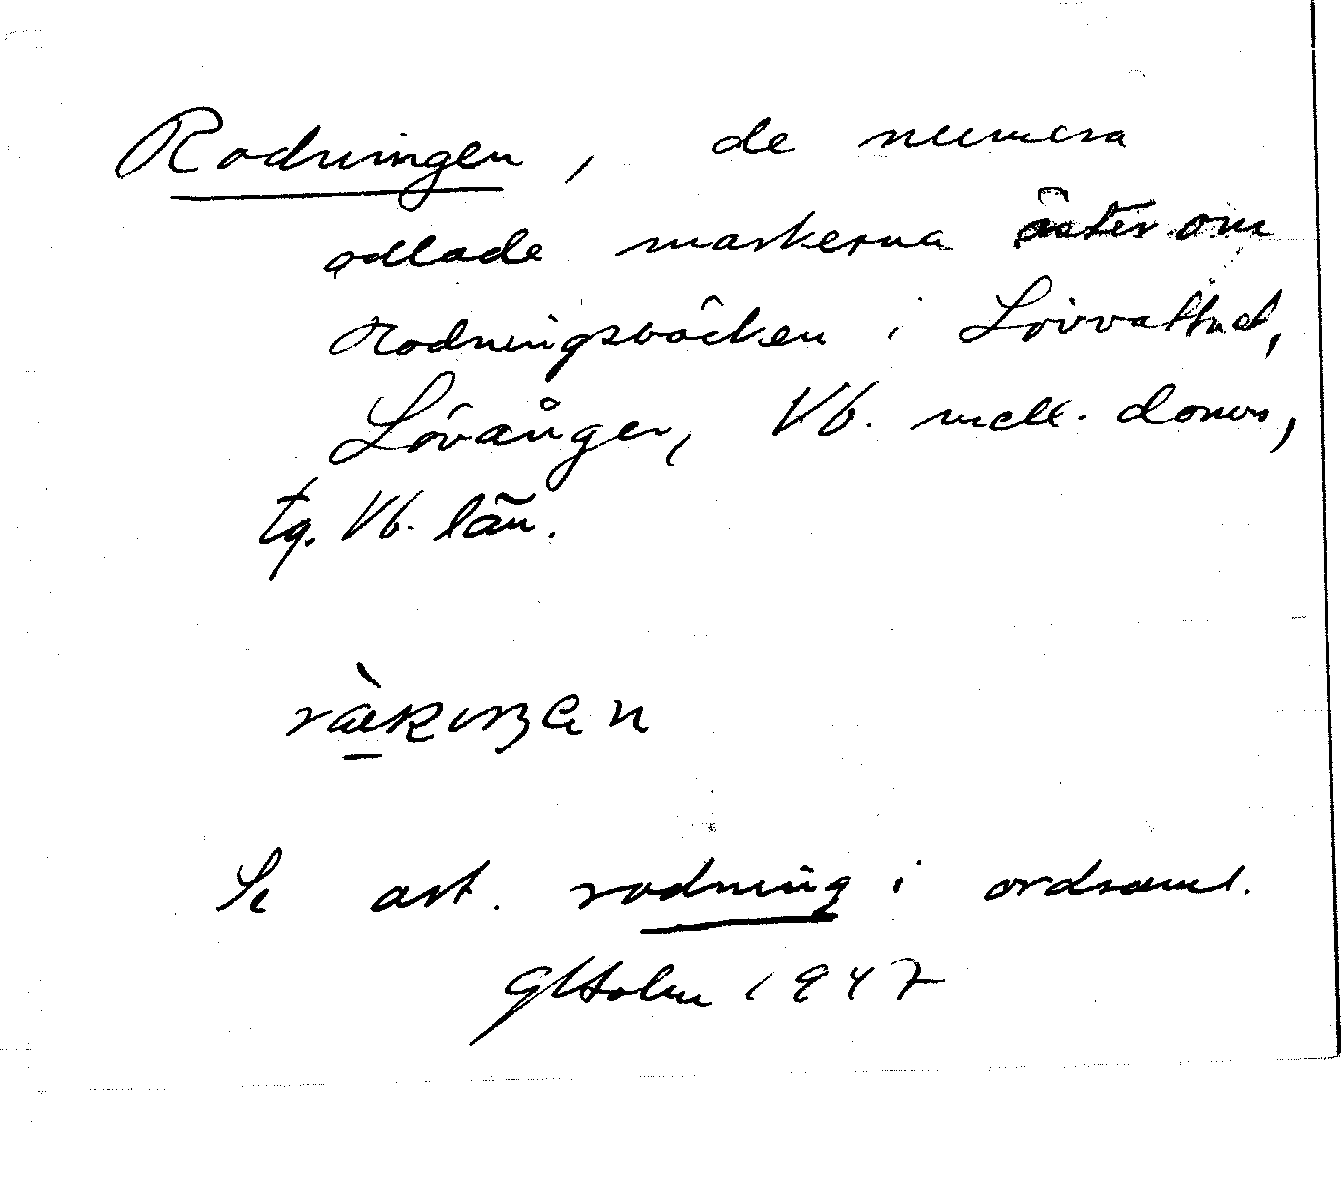 Rodningen, de numera
odlade markerna öster om
Rodningsbäcken i Lövvattnet,
Lövånger, Vb. mell. domes,
tg. Vb. län.
Se art. rodning i ordsaml.
GHolm 1947